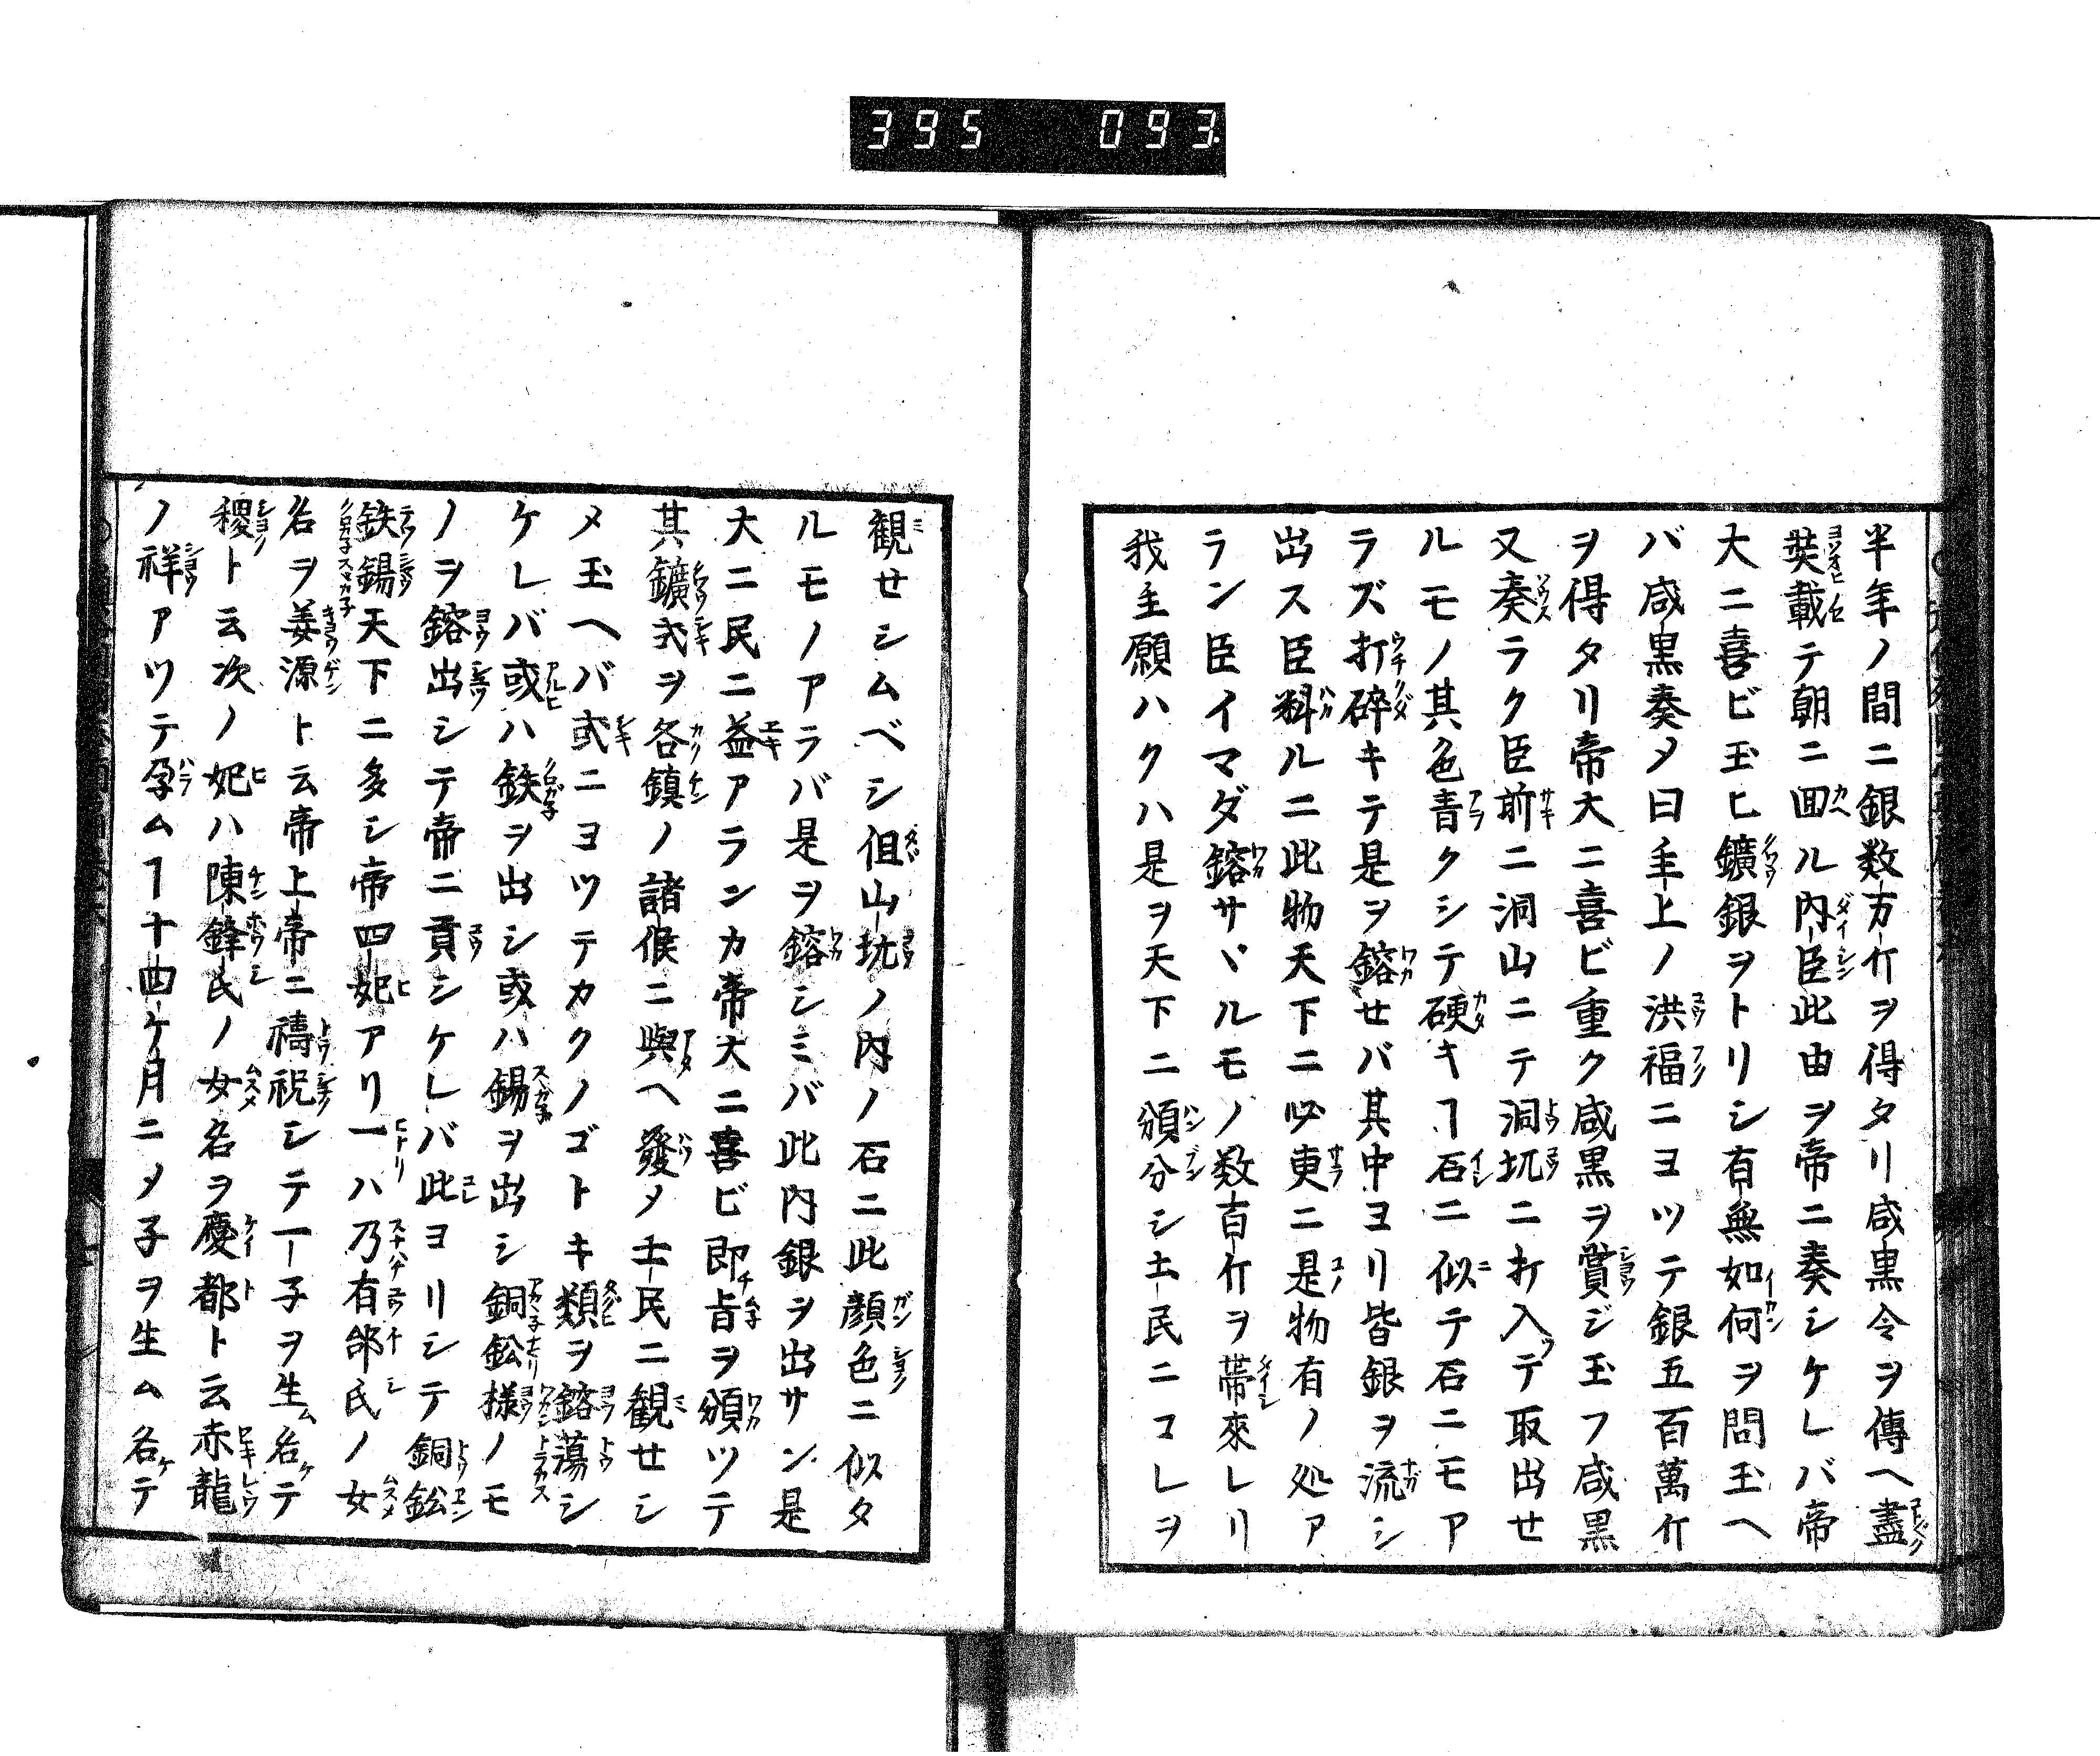 395 093
半年ノ間ニ銀数万斤ヲ得タリ咸黒令ヲ傳ヘ盡
装載テ朝ニ囬ル内臣此由ヲ帝ニ奏シケレバ帝
大ニ喜ビ玉ヒ鑛銀ヲトリシ有無如何ヲ問玉ヘ
バ咸黒奏〆曰主上ノ洪福ニヨツテ銀五百萬斤
ヲ得タリ帝大ニ喜ビ重ク咸黒ヲ賞ジ玉フ咸黒
又奏ラク臣前ニ洞山ニテ洞坑ニ打入テ取出せ
ルモノ其色青クシテ硬キヿ石ニ似テ石ニモア
ラズ打碎キテ是ヲ鎔せバ其中ヨリ皆銀ヲ流シ
出ス臣料ルニ此物天下ニ必更ニ是物有ノ処ア
ラン臣イマダ鎔サヾルモノ数百斤ヲ帯來レリ
我主願ハクハ是ヲ天下ニ頒分シ土民ニコレヲ
観せシムベシ但山坑ノ内ノ石ニ此顔色ニ似タ
ルモノアラバ是ヲ鎔シミバ此内銀ヲ出サン是
大ニ民ニ益アランカ帝大ニ喜ビ即旨ヲ頒ツテ
其鑛式ヲ各鎮ノ諸侯ニ與ヘ發〆士民ニ観せシ
メ玉ヘバ式ニヨツテカクノゴトキ類ヲ鎔蕩シ
ケレバ或ハ鉄ヲ出シ或ハ錫ヲ出シ銅鈆様ノモ
ノヲ鎔出シテ帝ニ貢シケレバ此ヨリシテ銅鈆
鉄錫天下ニ多シ帝四妃アリ一ハ乃有邰氏ノ女
名ヲ姜源ト云帝上帝ニ禱祝シテ一子ヲ生ム名ケテ
稷ト云次ノ妃ハ陳鋒氏ノ女名ヲ慶都ト云赤龍
ノ祥アツテ孕ムヿ十四ケ月ニ〆子ヲ生ム名ケテ